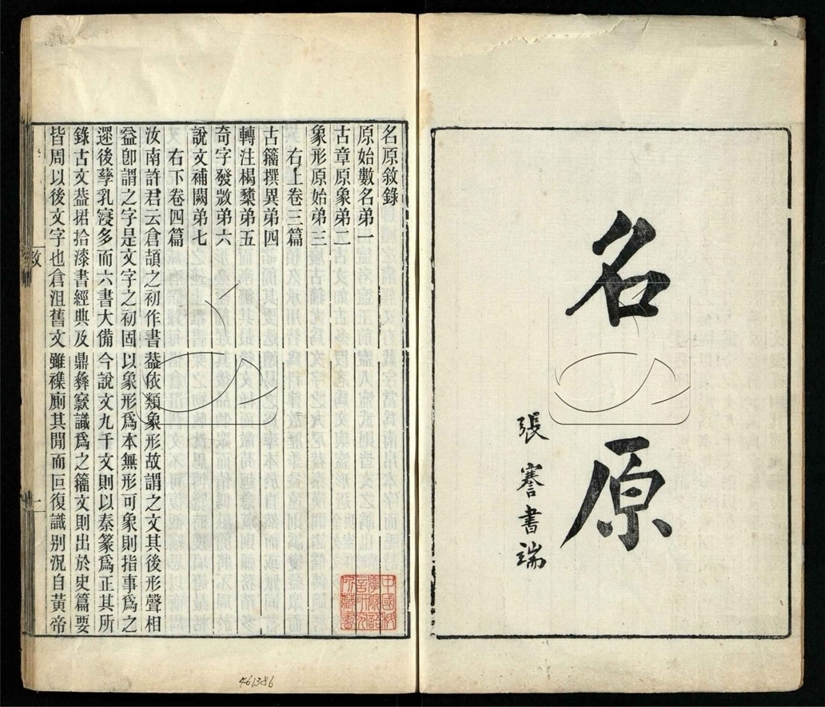 名原
張謇書端
名原敘錄
原始數名弟一
古章原象弟二
象形原始弟三
右上卷三篇
古籒撰異弟四
轉注楬櫫弟五
奇字發微弟六
說文補闕弟七
右下卷四篇
汝南許君云倉頡之初作書葢依類象形故謂之文其後形聲相
益卽謂之字是文字之初固以象形爲本無形可象則指事爲之
遝後孳乳寖多而六書大備今說文九千文則以秦篆爲正其所
錄古文葢捃拾漆書經典及鼎彝窾識爲之籒文則出於史篇要
皆周以後文字也倉沮舊文雖襍廁其閒而叵復識別況自黃帝
敘
一
461386